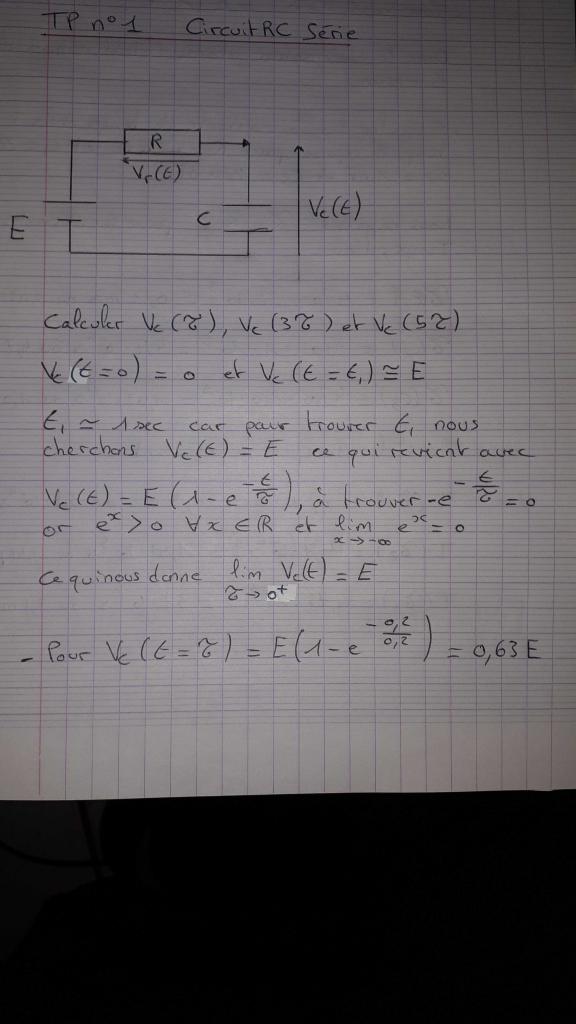 TP n°1 Circuit RC Série
R
Vr(t)
E
C
Vc(t)
Calculer Vc(τ), Vc(3τ) et Vc(5τ)
Vc(t=0) = 0 et Vc(t=t₁) ≅ E
t₁ ≃ 1sec car pour trouver t₁ nous
cherchons Vc(t) = E ce qui revient avec
Vc(t) = E(1-e^(-t/τ)), à trouver -e^(-t/τ) = 0
or e^x > 0 ∀x ∈ ℝ et lim x→-∞ e^x = 0
Ce qui nous donne lim τ→0⁺ Vc(t) = E
- Pour Vc(t=τ) = E(1-e^(-0,2/0,2)) = 0,63E